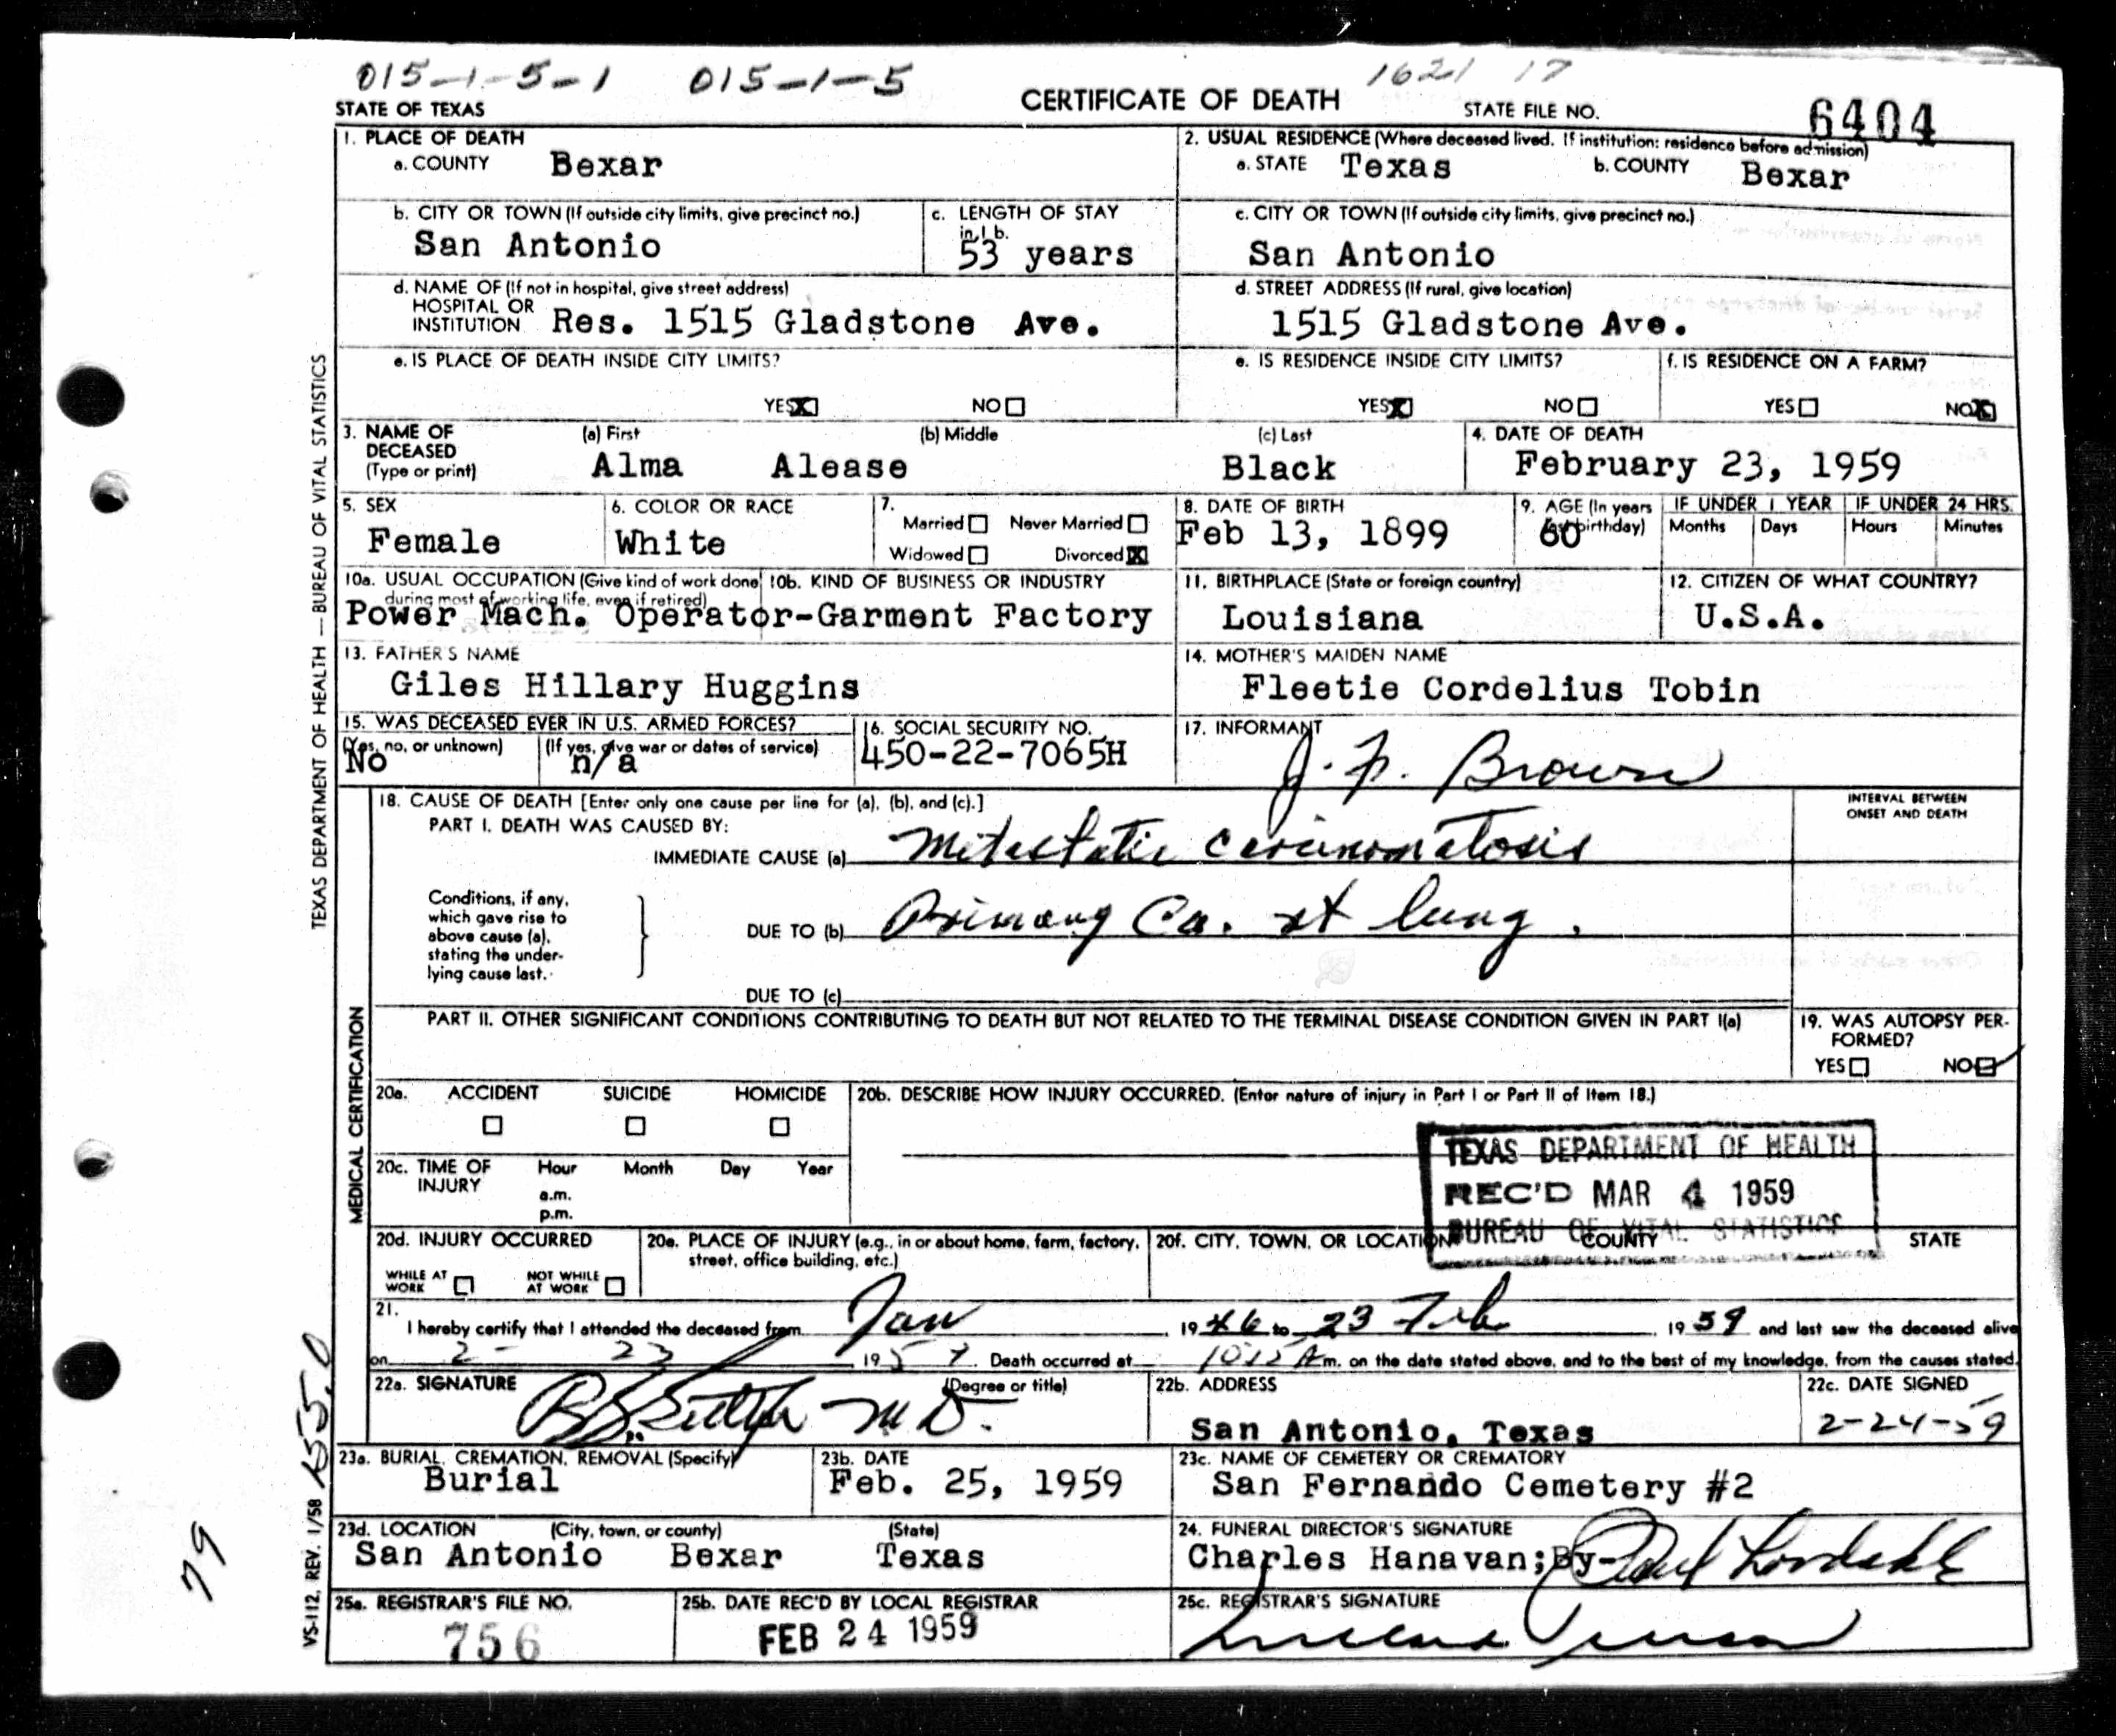 015-1-5-1 015-1-5 1621 17
STATE OF TEXAS CERTIFICATE OF DEATH STATE FILE NO. 6404
1. PLACE OF DEATH
a. COUNTY Bexar
2. USUAL RESIDENCE (Where deceased lived. If institution: residence before admission)
a. STATE Texas b. COUNTY Bexar
b. CITY OR TOWN (If outside city limits, give precinct no.)
San Antonio
c. LENGTH OF STAY
in 1 b.
53 years
c. CITY OR TOWN (If outside city limits, give precinct no.)
San Antonio
d. NAME OF (If not in hospital, give street address)
HOSPITAL OR
INSTITUTION Res. 1515 Gladstone Ave.
d. STREET ADDRESS (If rural, give location)
1515 Gladstone Ave.
e. IS PLACE OF DEATH INSIDE CITY LIMITS?
YES X NO
e. IS RESIDENCE INSIDE CITY LIMITS?
YES X NO
f. IS RESIDENCE ON A FARM?
YES NO X
3. NAME OF
DECEASED
(Type or print)
(a) First (b) Middle (c) Last
Alma Alease Black
4. DATE OF DEATH
February 23, 1959
5. SEX
Female
6. COLOR OR RACE
White
7.
Married Never Married
Widowed Divorced X
8. DATE OF BIRTH
Feb 13, 1899
9. AGE (In years
last birthday)
60
IF UNDER 1 YEAR IF UNDER 24 HRS.
Months Days Hours Minutes
10a. USUAL OCCUPATION (Give kind of work done
during most of working life, even if retired)
10b. KIND OF BUSINESS OR INDUSTRY
Power Mach. Operator-Garment Factory
11. BIRTHPLACE (State or foreign country)
Louisiana
12. CITIZEN OF WHAT COUNTRY?
U.S.A.
13. FATHER'S NAME
Giles Hillary Huggins
14. MOTHER'S MAIDEN NAME
Fleetie Cordelius Tobin
15. WAS DECEASED EVER IN U.S. ARMED FORCES?
(Yes, no, or unknown) (If yes, give war or dates of service)
No n/a
16. SOCIAL SECURITY NO.
450-22-7065H
17. INFORMANT
J. F. Brown
18. CAUSE OF DEATH [Enter only one cause per line for (a), (b), and (c).]
INTERVAL BETWEEN
ONSET AND DEATH
PART I. DEATH WAS CAUSED BY:
IMMEDIATE CAUSE (a) Metastatic carcinomatosis
Conditions, if any,
which gave rise to
above cause (a),
stating the under-
lying cause last.
DUE TO (b) Primary Ca. rt lung.
DUE TO (c)
PART II. OTHER SIGNIFICANT CONDITIONS CONTRIBUTING TO DEATH BUT NOT RELATED TO THE TERMINAL DISEASE CONDITION GIVEN IN PART I(a)
19. WAS AUTOPSY PER-
FORMED?
YES NO
20a. ACCIDENT SUICIDE HOMICIDE
20b. DESCRIBE HOW INJURY OCCURRED. (Enter nature of injury in Part I or Part II of Item 18.)
20c. TIME OF
INJURY
Hour Month Day Year
a.m.
p.m.
TEXAS DEPARTMENT OF HEALTH
REC'D MAR 4 1959
BUREAU OF VITAL STATISTICS
20d. INJURY OCCURRED
WHILE AT
WORK
NOT WHILE
AT WORK
20e. PLACE OF INJURY (e.g., in or about home, farm, factory,
street, office building, etc.)
20f. CITY, TOWN, OR LOCATION COUNTY STATE
21.
I hereby certify that I attended the deceased from Jan, 1946 to 23 Feb, 1959 and last saw the deceased alive
on 2- 23 1959. Death occurred at 1015 A m. on the date stated above, and to the best of my knowledge, from the causes stated.
22a. SIGNATURE (Degree or title)
M D.
22b. ADDRESS
San Antonio, Texas
22c. DATE SIGNED
2-24-59
23a. BURIAL, CREMATION, REMOVAL (Specify)
Burial
23b. DATE
Feb. 25, 1959
23c. NAME OF CEMETERY OR CREMATORY
San Fernando Cemetery #2
23d. LOCATION (City, town, or county) (State)
San Antonio Bexar Texas
24. FUNERAL DIRECTOR'S SIGNATURE
Charles Hanavan;By-
25a. REGISTRAR'S FILE NO.
756
25b. DATE REC'D BY LOCAL REGISTRAR
FEB 24 1959
25c. REGISTRAR'S SIGNATURE
TEXAS DEPARTMENT OF HEALTH — BUREAU OF VITAL STATISTICS
MEDICAL CERTIFICATION
VS-112, REV. 1/58
79